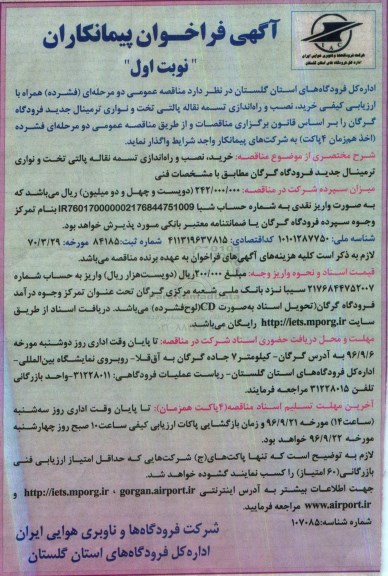 آگهی فراخوان پیمانکاران
"نوبت اول"
شرکت فرودگاه‌ها و ناوبری هوایی ایران
اداره کل فرودگاه‌های استان گلستان
اداره‌کل فرودگاه‌های استان گلستان در نظر دارد مناقصه عمومی دو مرحله‌ای (فشرده) همراه با
ارزیابی کیفی خرید، نصب و راه‌اندازی تسمه نقاله پالتی تخت و نواری ترمینال جدید فرودگاه
گرگان را بر اساس قانون برگزاری مناقصات و از طریق مناقصه عمومی دو مرحله‌ای فشرده
(اخذ هم‌زمان ۴پاکت) به شرکت‌های پیمانکار واجد شرایط واگذار نماید.
شرح مختصری از موضوع مناقصه: خرید، نصب و راه‌اندازی تسمه نقاله پالتی تخت و نواری
ترمینال جدید فرودگاه گرگان مطابق با مشخصات فنی
میزان سپرده شرکت در مناقصه: ۲۴۲/۰۰۰/۰۰۰ (دویست و چهل و دو میلیون) ریال می‌باشد که
به صورت واریز نقدی به شماره حساب شبا IR760170000002176844751009 بنام تمرکز
وجوه سپرده فرودگاه گرگان یا ضمانتنامه معتبر بانکی مورد پذیرش خواهد بود.
شناسه ملی: ۱۰۱۰۱۲۸۷۷۵۰ کداقتصادی: ۴۱۱۳۱۹۶۳۷۸۱۵ شماره ثبت: ۸۴۱۸۵ مورخه: ۷۰/۳/۲۹
لازم به ذکر است کلیه هزینه‌های آگهی‌های فراخوان به عهده برنده مناقصه می‌باشد.
قیمت اسناد و نحوه واریز وجه: مبلغ ۲۰۰/۰۰۰ریال (دویست‌هزار ریال) واریز به حساب شماره
۲۱۷۶۸۴۴۷۵۲۰۰۷ سیبا نزد بانک ملی شعبه مرکزی گرگان تحت عنوان تمرکز وجوه درآمد
فرودگاه گرگان(تحویل اسناد به‌صورت CD(لوح‌فشرده) می‌باشد. دریافت اسناد از طریق
سایت http://iets.mporg.ir رایگان می‌باشد.
مهلت و محل دریافت حضوری اسناد شرکت در مناقصه: تا پایان وقت اداری روز دوشنبه مورخه
۹۶/۹/۶ به آدرس گرگان- کیلومتر۷ جاده گرگان به آق‌قلا- روبروی نمایشگاه بین‌المللی-
اداره‌کل فرودگاه‌های استان گلستان- ریاست عملیات فرودگاهی: ۳۱۲۲۸۰۱۱-واحد بازرگانی
تلفن ۳۱۲۲۸۰۱۵ مراجعه فرمایند.
آخرین مهلت تسلیم اسناد مناقصه(۴پاکت همزمان): تا پایان وقت اداری روز سه‌شنبه
(ساعت۱۴) مورخه ۹۶/۹/۲۱ و زمان بازگشایی پاکات ارزیابی کیفی ساعت۱۰صبح روز چهارشنبه
مورخه ۹۶/۹/۲۲ خواهد بود.
لازم به توضیح است که تنها پاکت‌های(ج) شرکت‌هایی که حداقل امتیاز ارزیابی فنی
بازرگانی(۶۰ امتیاز) را کسب نمایند گشوده خواهد شد.
جهت اطلاعات بیشتر به آدرس اینترنتی http://iets.mporg.ir ، gorgan.airport.ir و
www.airport.ir مراجعه فرمایید.
شماره شناسه: ۱۰۷۰۸۵
شرکت فرودگاه‌ها و ناوبری هوایی ایران
اداره‌کل فرودگاه‌های استان گلستان